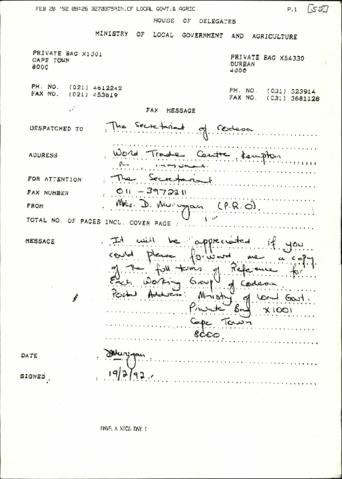 FEB 20 '92 09:26 3270375MIN.OF LOCAL GOVT.& AGRIC P.1
HOUSE OF DELEGATES
MINISTRY OF LOCAL GOVERNMENT AND AGRICULTURE
PRIVATE BAG X1001
CAPE TOWN
8000
PRIVATE BAG X54330
DURBAN
4000
PH. NO. (021) 4612242
FAX NO. (021) 453619
PH. NO. (031) 323914
FAX NO. (031) 3681128
FAX MESSAGE
DESPATCHED TO : The Secretariat of Codesa
ADDRESS : World Trade Centre, Kempton
FOR ATTENTION : The Secretariat
FAX NUMBER : 011 - 3972211
FROM : Mrs. D. Murugan (P.R.O).
TOTAL NO. OF PAGES INCL. COVER PAGE : 1
MESSAGE : It will be appreciated if you
could please forward me a copy
of the full terms of Reference for
Each Working Group of Codesa.
Postal Address: Ministry of Local Govt.
Private Bag X1001
Cape Town
8000.
DATE : DMurugan.
SIGNED : 19/2/92.
HAVE A NICE DAY !